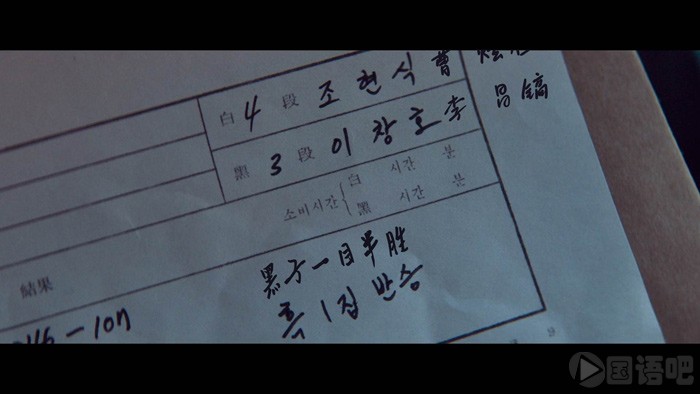 白 4 段 조현식 曹
昌鎬
黑 3 段 이창호 李
소비시간 白 시간 분
黑 시간 분
結果
黑子一目半胜
흑 1집 반승
国语吧